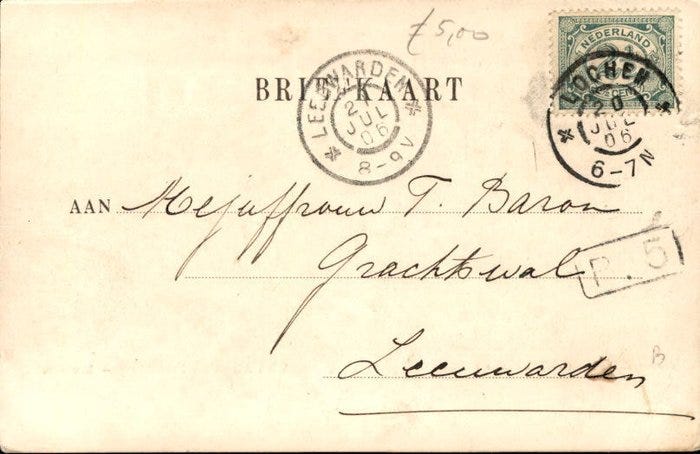 f 5,00
NEDERLAND
BRIEFKAART
LEEUWARDEN
21
JUL
06
8-9V
LOCHEM
20
JUL
06
6-7N
AAN Mejuffrouw T. Baron
Grachtswal
P. 5
Leeuwarden
B